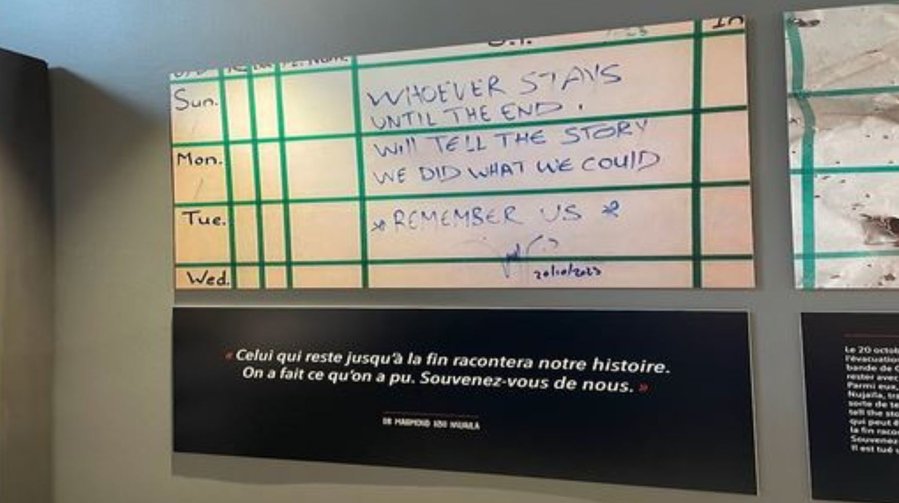 Sun.
WHOEVER STAYS
UNTIL THE END.
Mon.
Will TELL THE STORY
WE DID WHAT WE COULD
Tue.
* REMEMBER US *
20/10/2023
Wed.
« Celui qui reste jusqu'à la fin racontera notre histoire.
On a fait ce qu'on a pu. Souvenez-vous de nous. »
DR MAHMOUD ABU NUJAILA
Le 20 octob
l'évacuatio
bande de G
rester avec
Parmi eux,
Nujaila, tra
sorte de te
tell the sto
qui peut ê
la fin raco
Souvenez
Il est tué